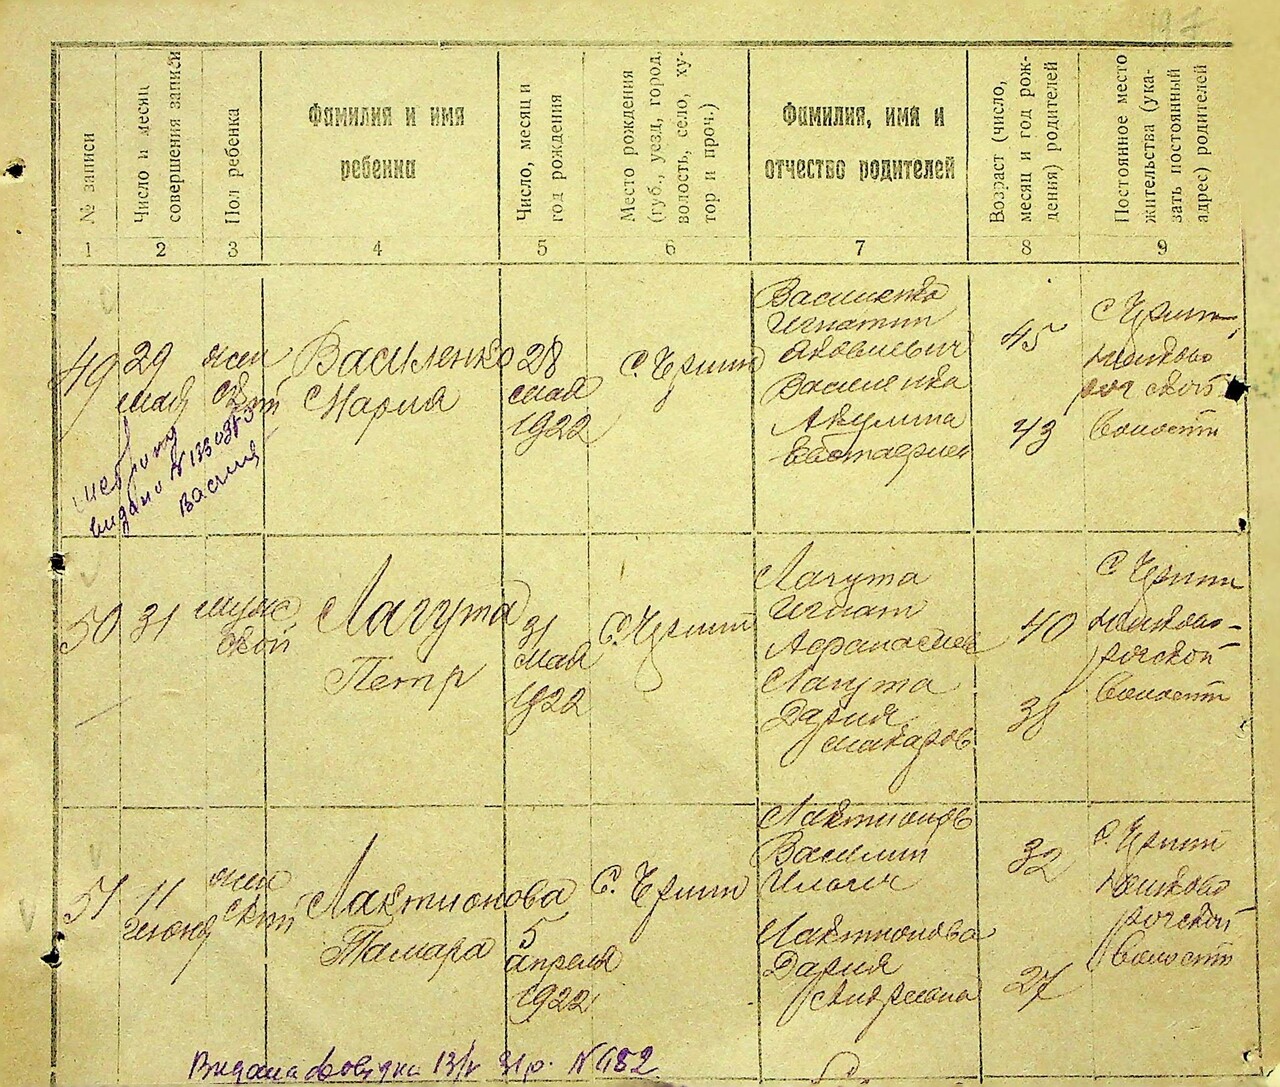 № записи
Число и месяц
совершения записи
Пол ребенка
Фамилия и имя
ребенка
Число, месяц и
год рождения
Место рождения
(губ., уезд, город,
волость, село, ху-
тор и проч.)
Фамилия, имя и
отчество родителей
Возраст (число,
месяц и год рож-
дения) родителей
Постоянное место
жительства (ука-
зать постоянный
адрес) родителей
1 2 3 4 5 6 7 8 9
49
29
мая
жен
ский
Василенко
Мария
28
мая
1922
Василенко
Игнатий
Яковлевич
Василенко
Акулина
Евстафиев
45
43
волости
видано N
50
31
муж
ской
Лагута
Петр
31
мая
1922
Лагута
Игнат
Афанасиев
Лагута
Дария
Макаров
40
38
волости
51
11
июня
жен
ский
Лактионова
Тамара
5
апреля
1922
Лактионов
Василий
Ильич
Лактионова
Дария
Андреевна
32
27
волости
Видана довідка 13/V 31 р. N 482